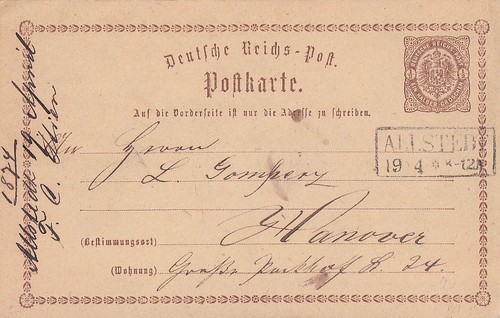 Deutsche Reichs-Post.
Postkarte.
Auf die Vorderseite ist nur die Adresse zu schreiben.
ALLSTEDT
19 4 8-12
Herrn
L. Gomperz
Hanover
(Bestimmungsort)
(Wohnung) Große Packhof St. 24.
1874